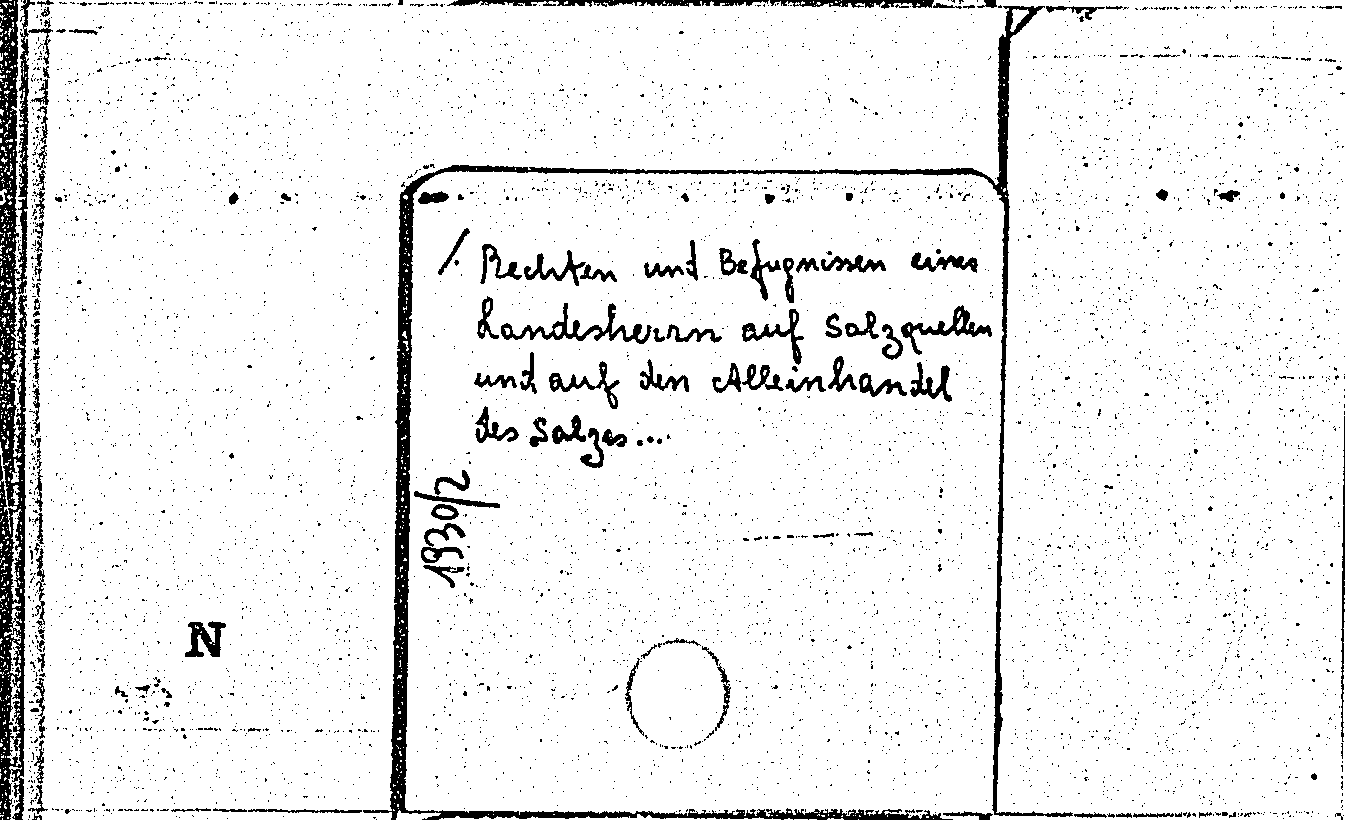 /. Rechten und Befugnissen eines
Landesherrn auf Salzquellen
und auf den Alleinhandel
des Salzes...
1930/2
N